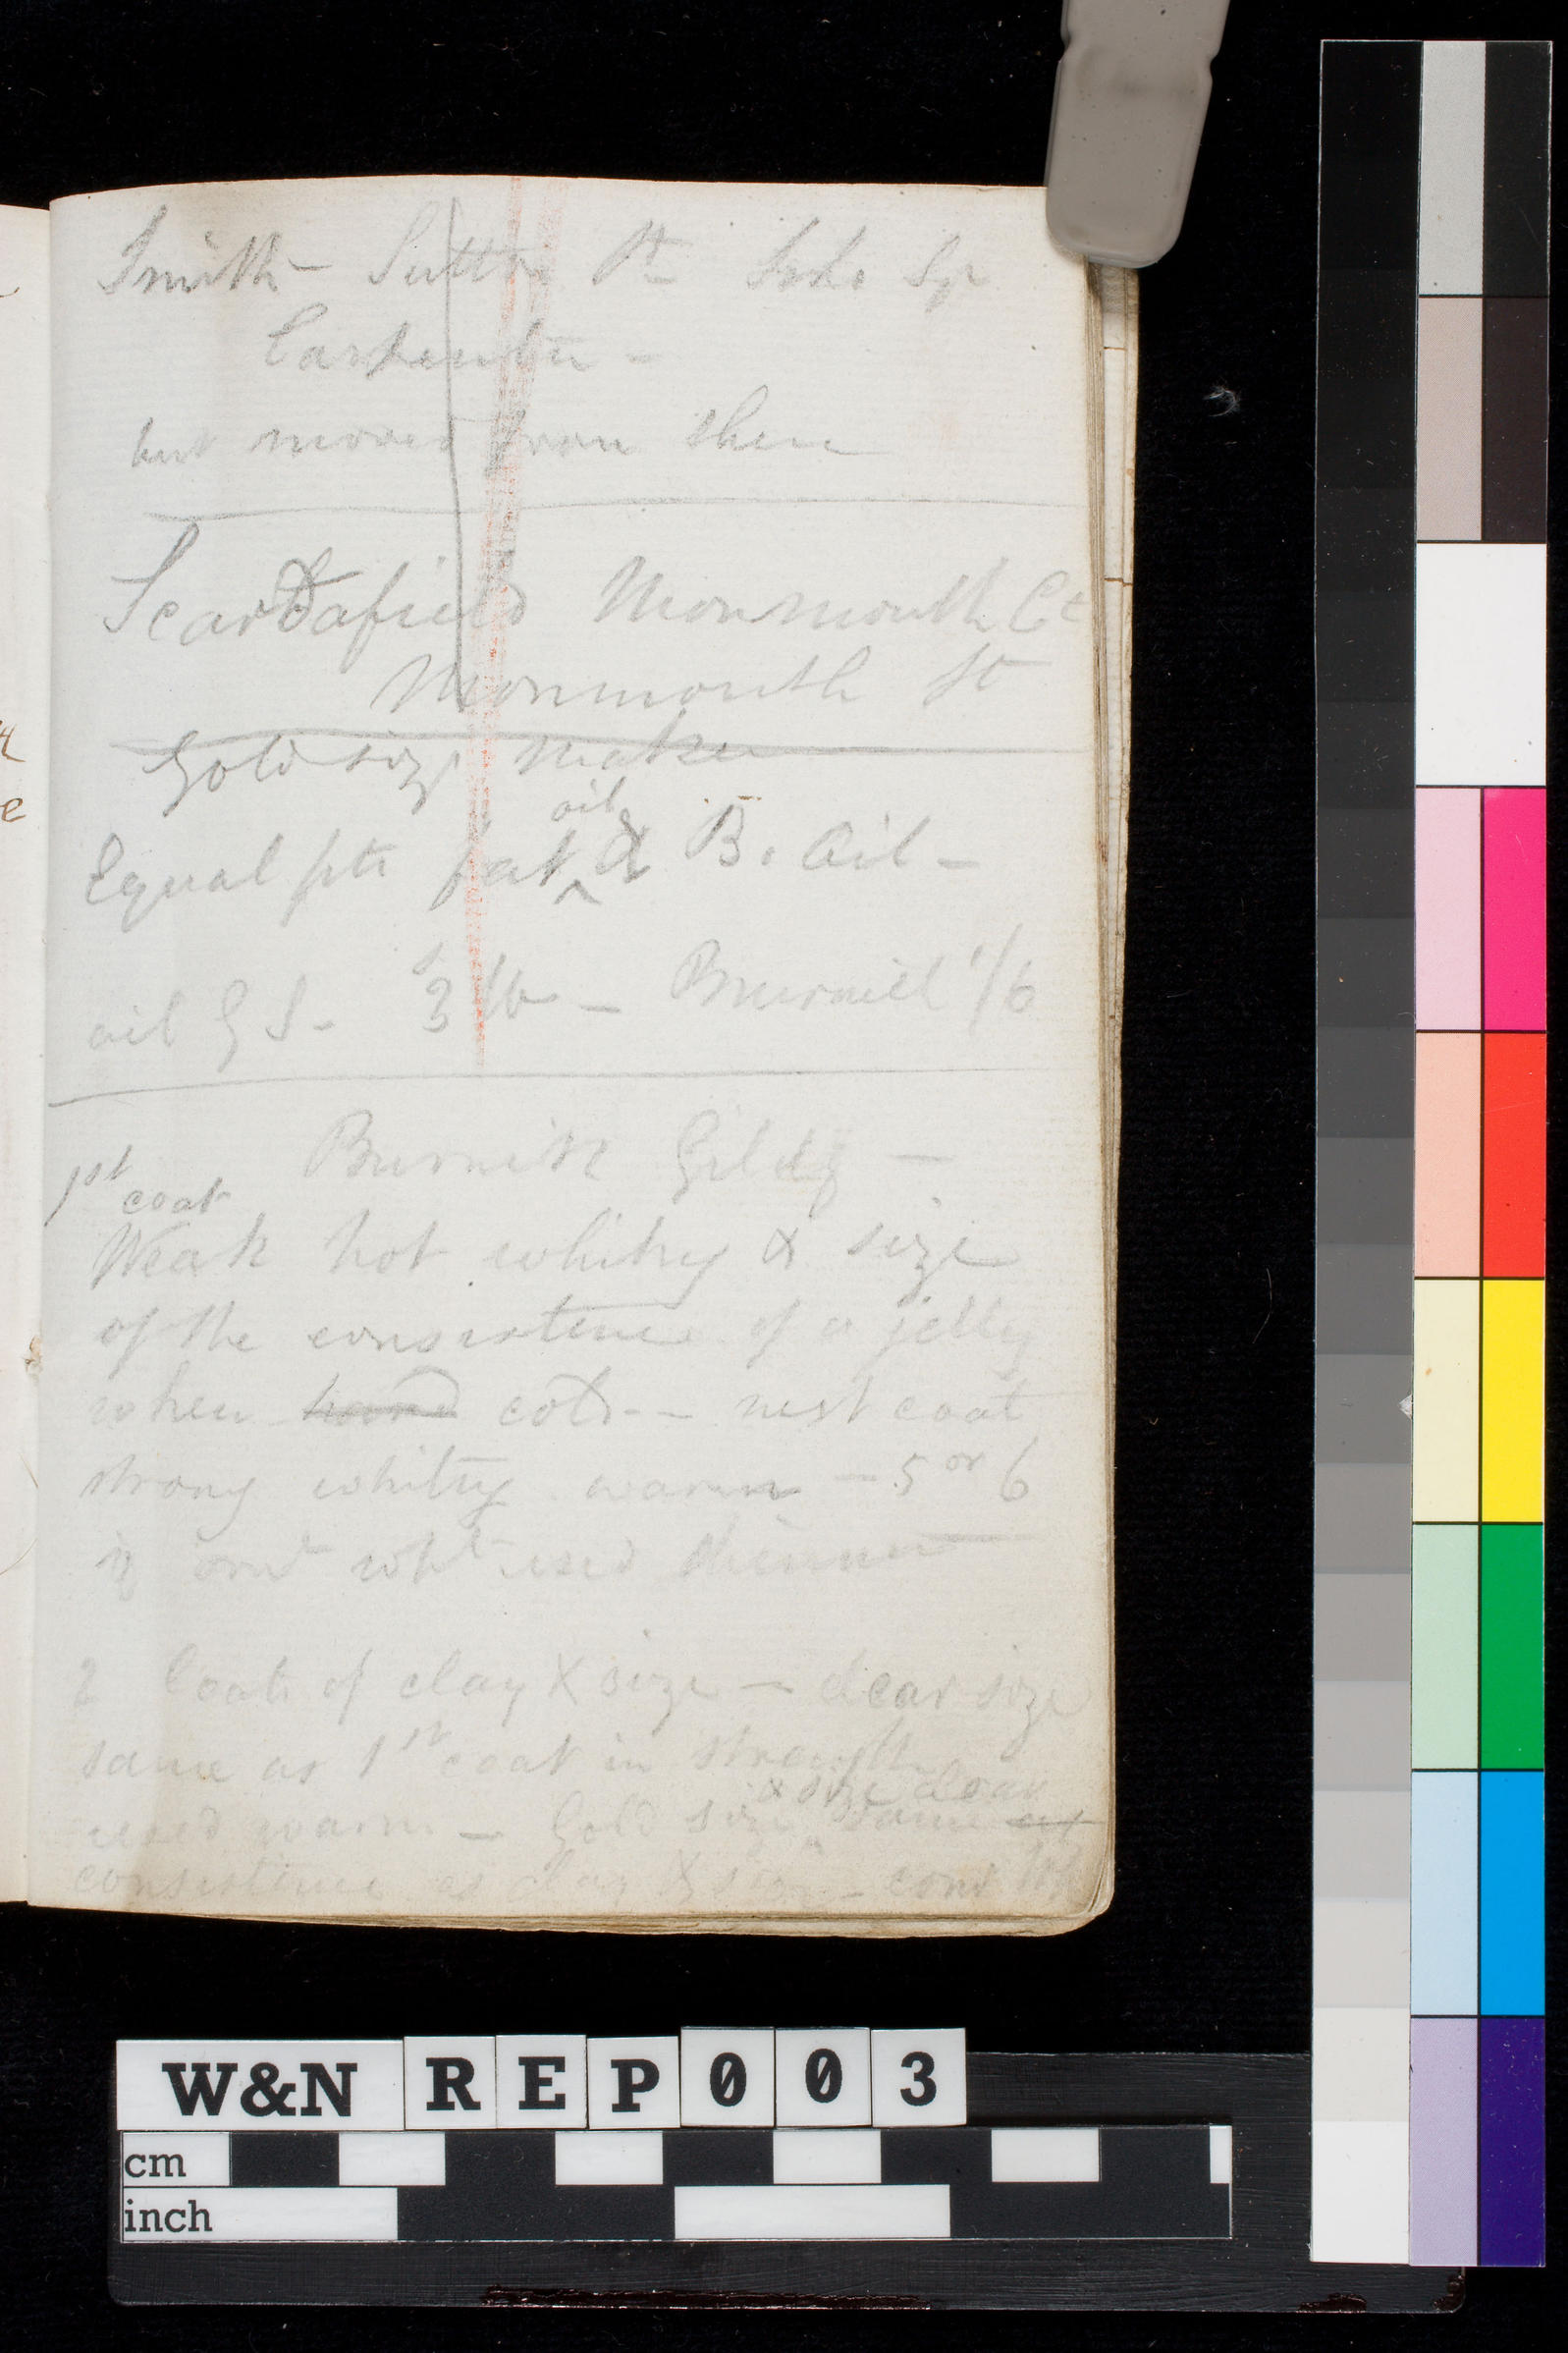 Smith - Sutton St Soho Sq
Carpenter -
but moved from there
Scardafield Monmouth Ct
Monmouth St
Gold size maker
Equal pts fat oil & B. Oil -
oil G S - 3s lb - Burnish 1/6
Burnish Gildg -
1st coat
Weak hot whitng & size
of the consistence of a jelly
when hard cold - - next coat
strong whitng warm - 5 or 6
if wht used thinner
2 Coats of clay & size - clear size
same as 1st coat in strength
& size clear
used warm - Gold size same as
consistence as clay & size -
W&N REP003
cm
inch